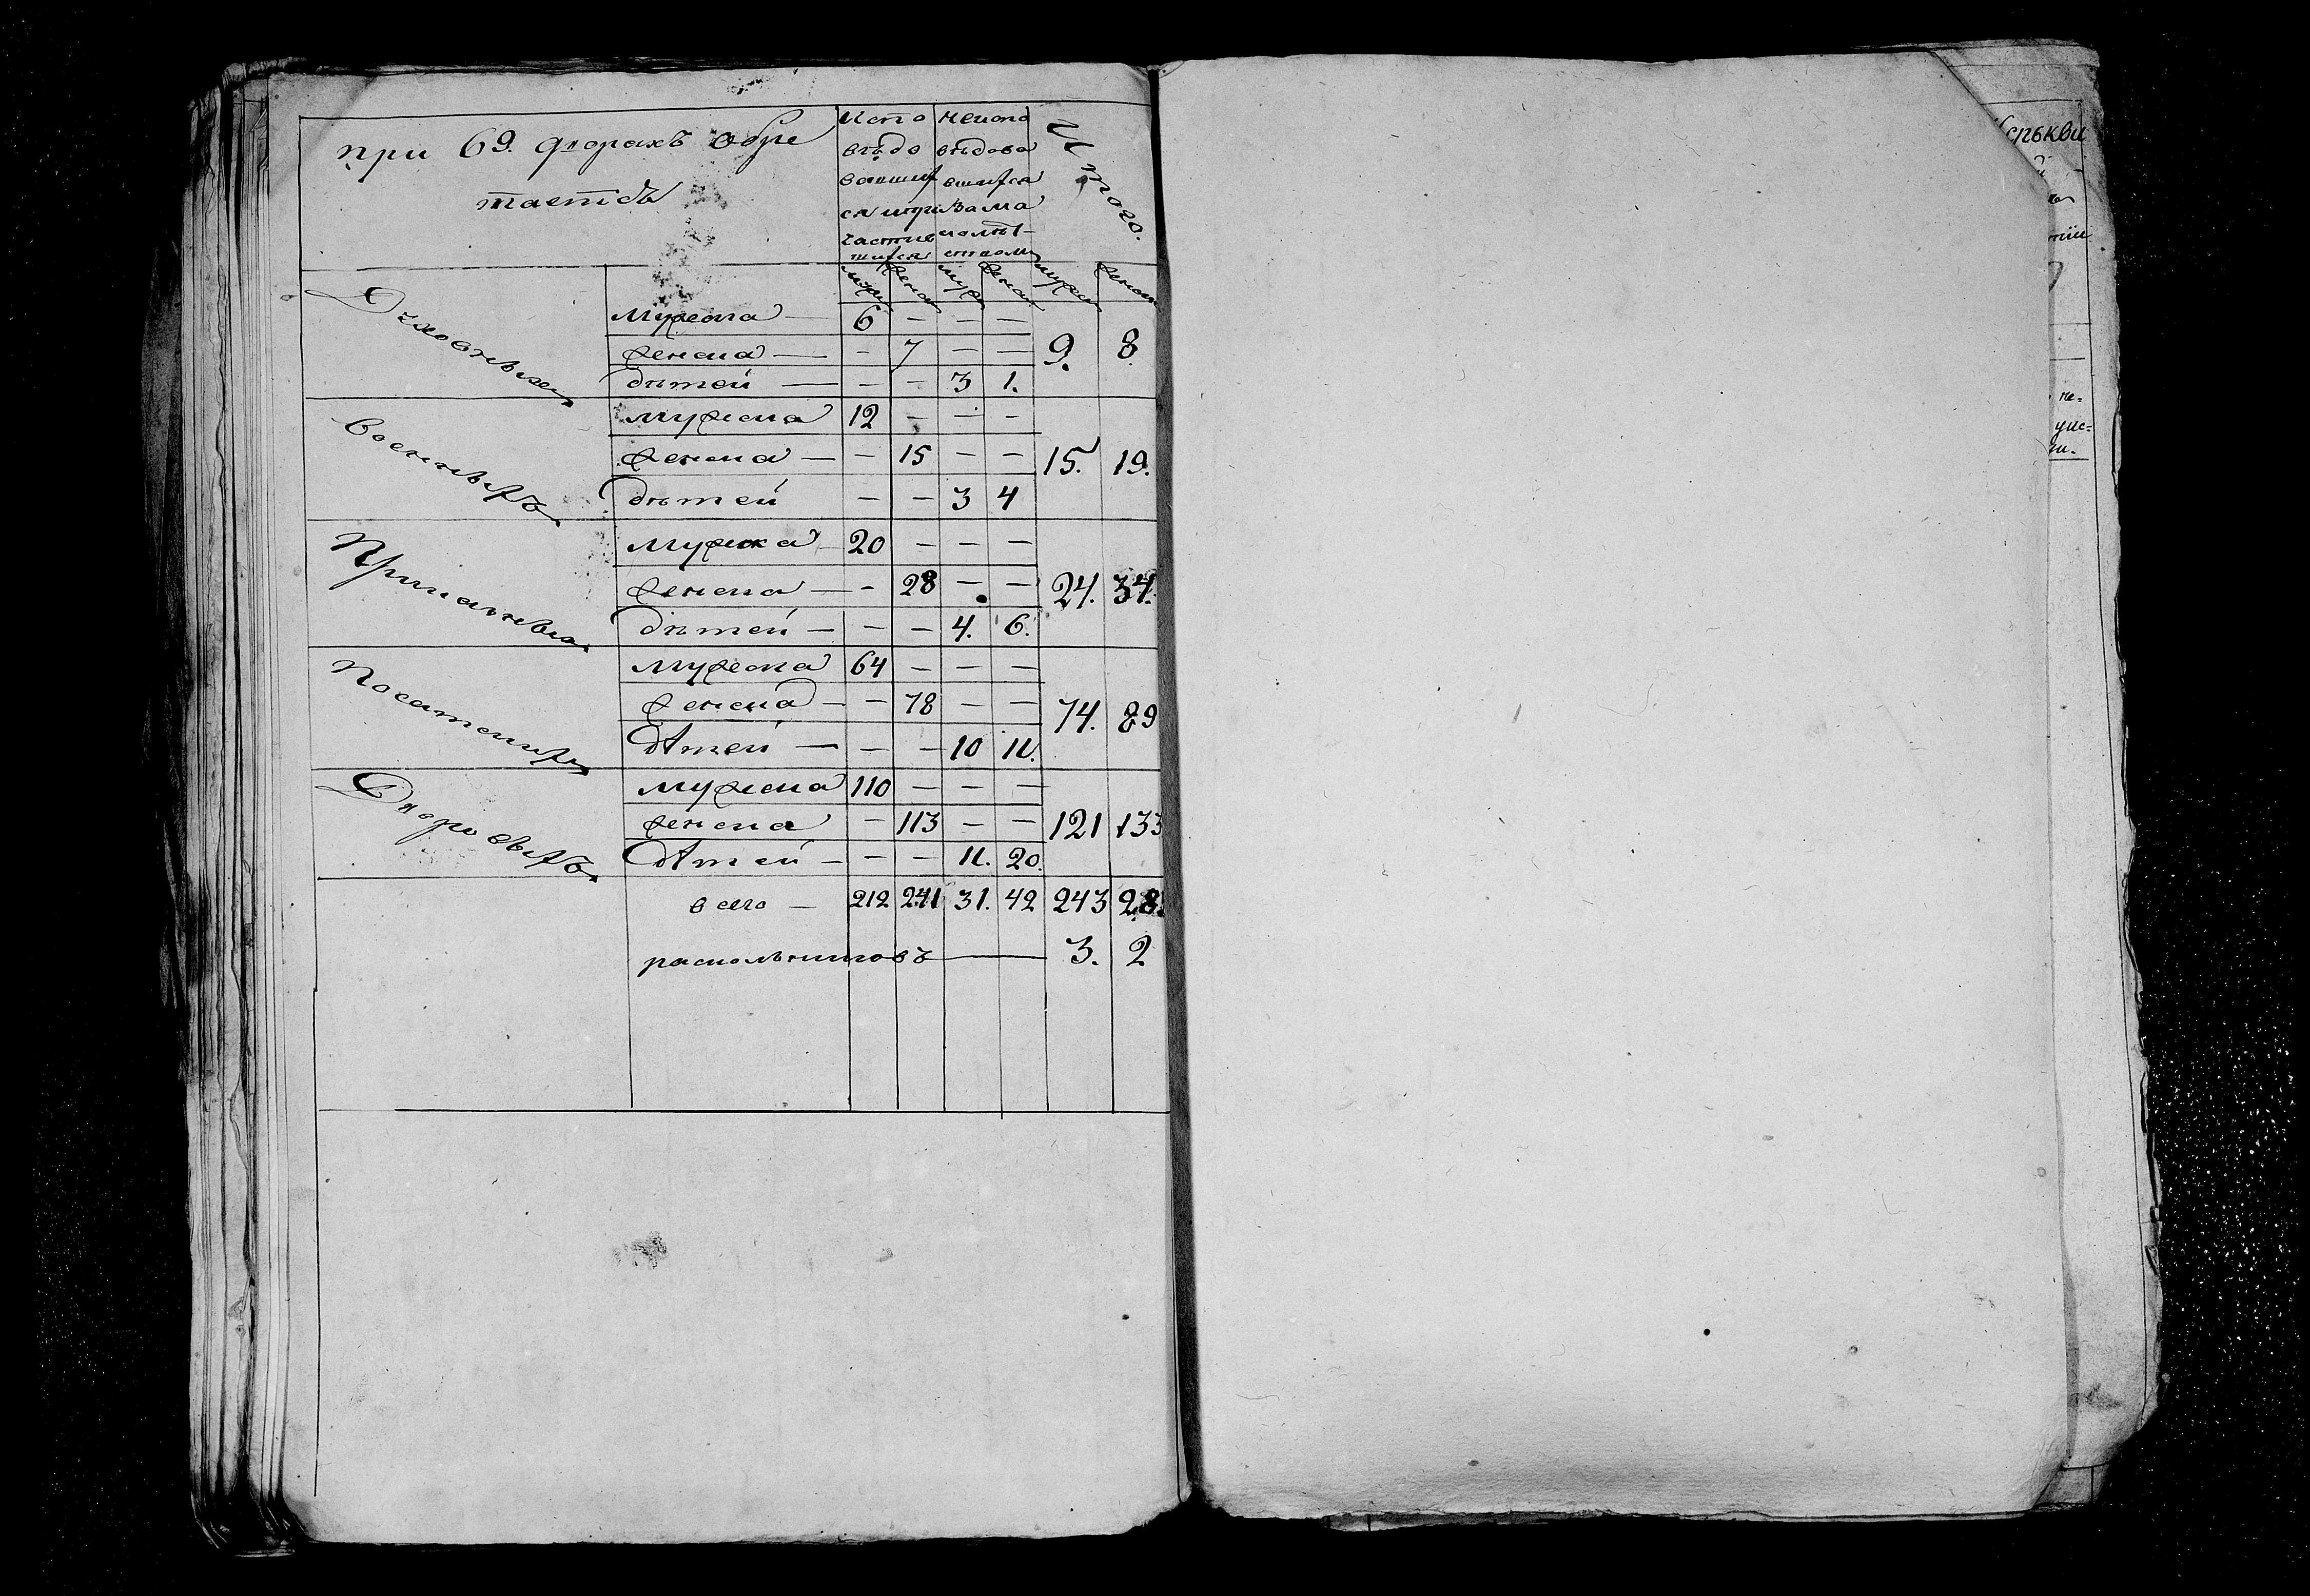 при 69. дворахъ обре
тается
Испо
вѣдо
вавших
ся и при
частив
шихся
Неиспо
вѣдова
вшихся
За ма
лолѣт-
ствомъ
Итого.
мужеск женск муж женск мужеск женск
Духовныхъ
Мужеска — 6 — — — 9. 8.
женска — — 7 — —
дѣтей — — — 3 1.
Военныхъ
мужеска 12 — — — 15. 19.
женска — — 15 — —
дѣтей — — 3 4
Приказныхъ
Мужеска 20 — — — 24. 34.
женска — — 28 — —
дѣтей — — — 4. 6.
Посатскихъ
мужеска 64 — — — 74. 89
женска — — 78 — —
дѣтей — — — 10 11.
Дворовыхъ
мужеска 110 — — — 121 133
женска — 113 — —
дѣтей — — — 11. 20.
всего — 212 241 31. 42 243 28
раскольниковъ — 3. 2
Церькви
не-